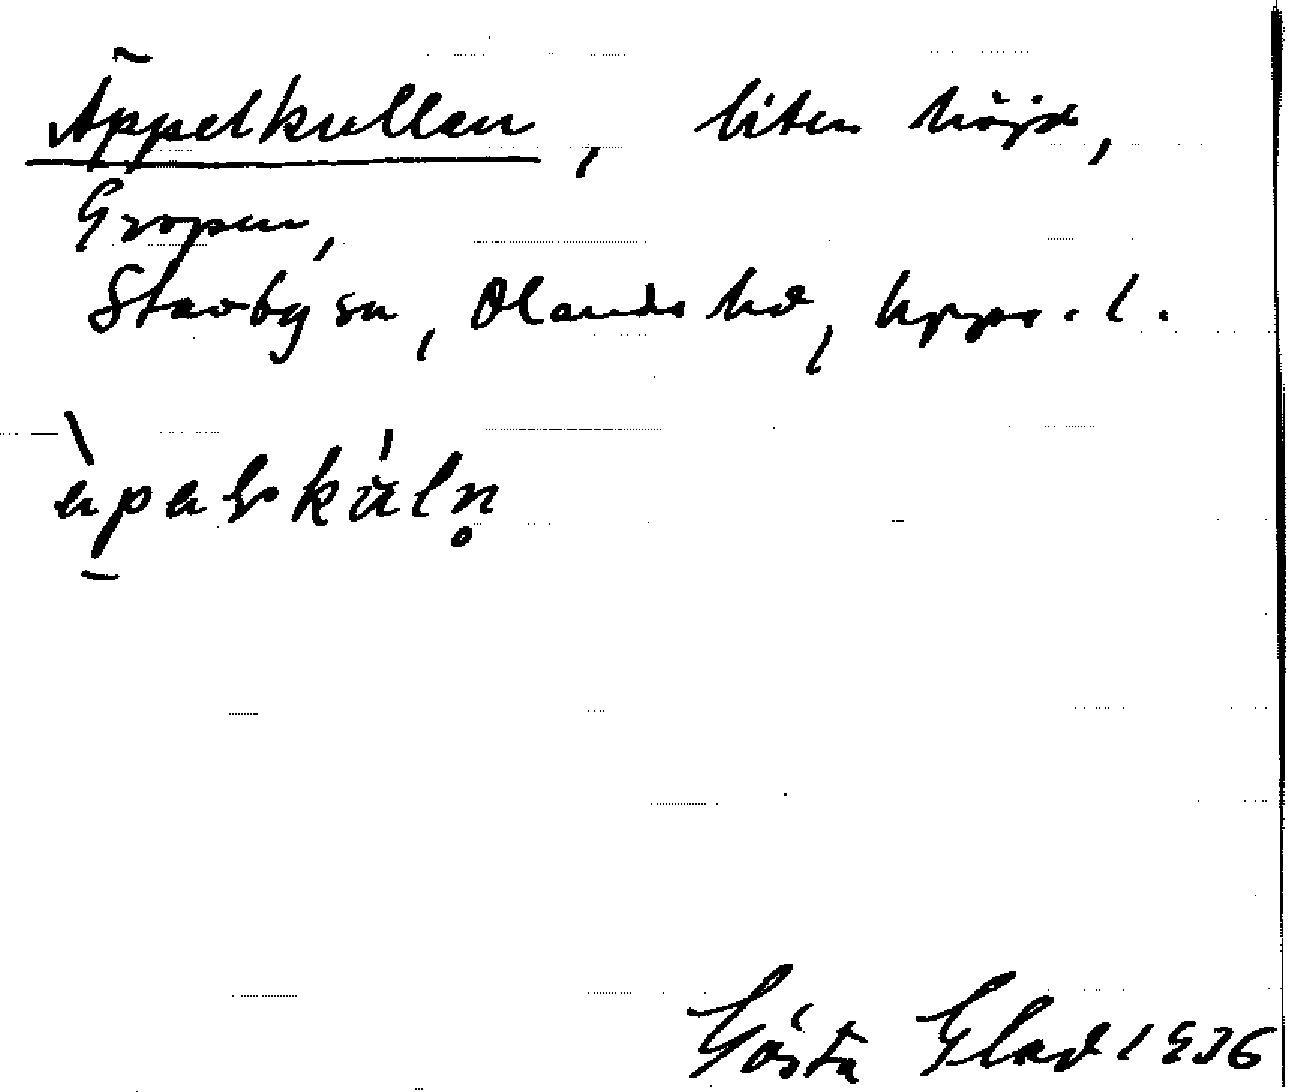 Äppelkullen, liten höjd,
Gropen,
Stavby sn, Olands hd, Upps. l.
Gösta Glad 1936